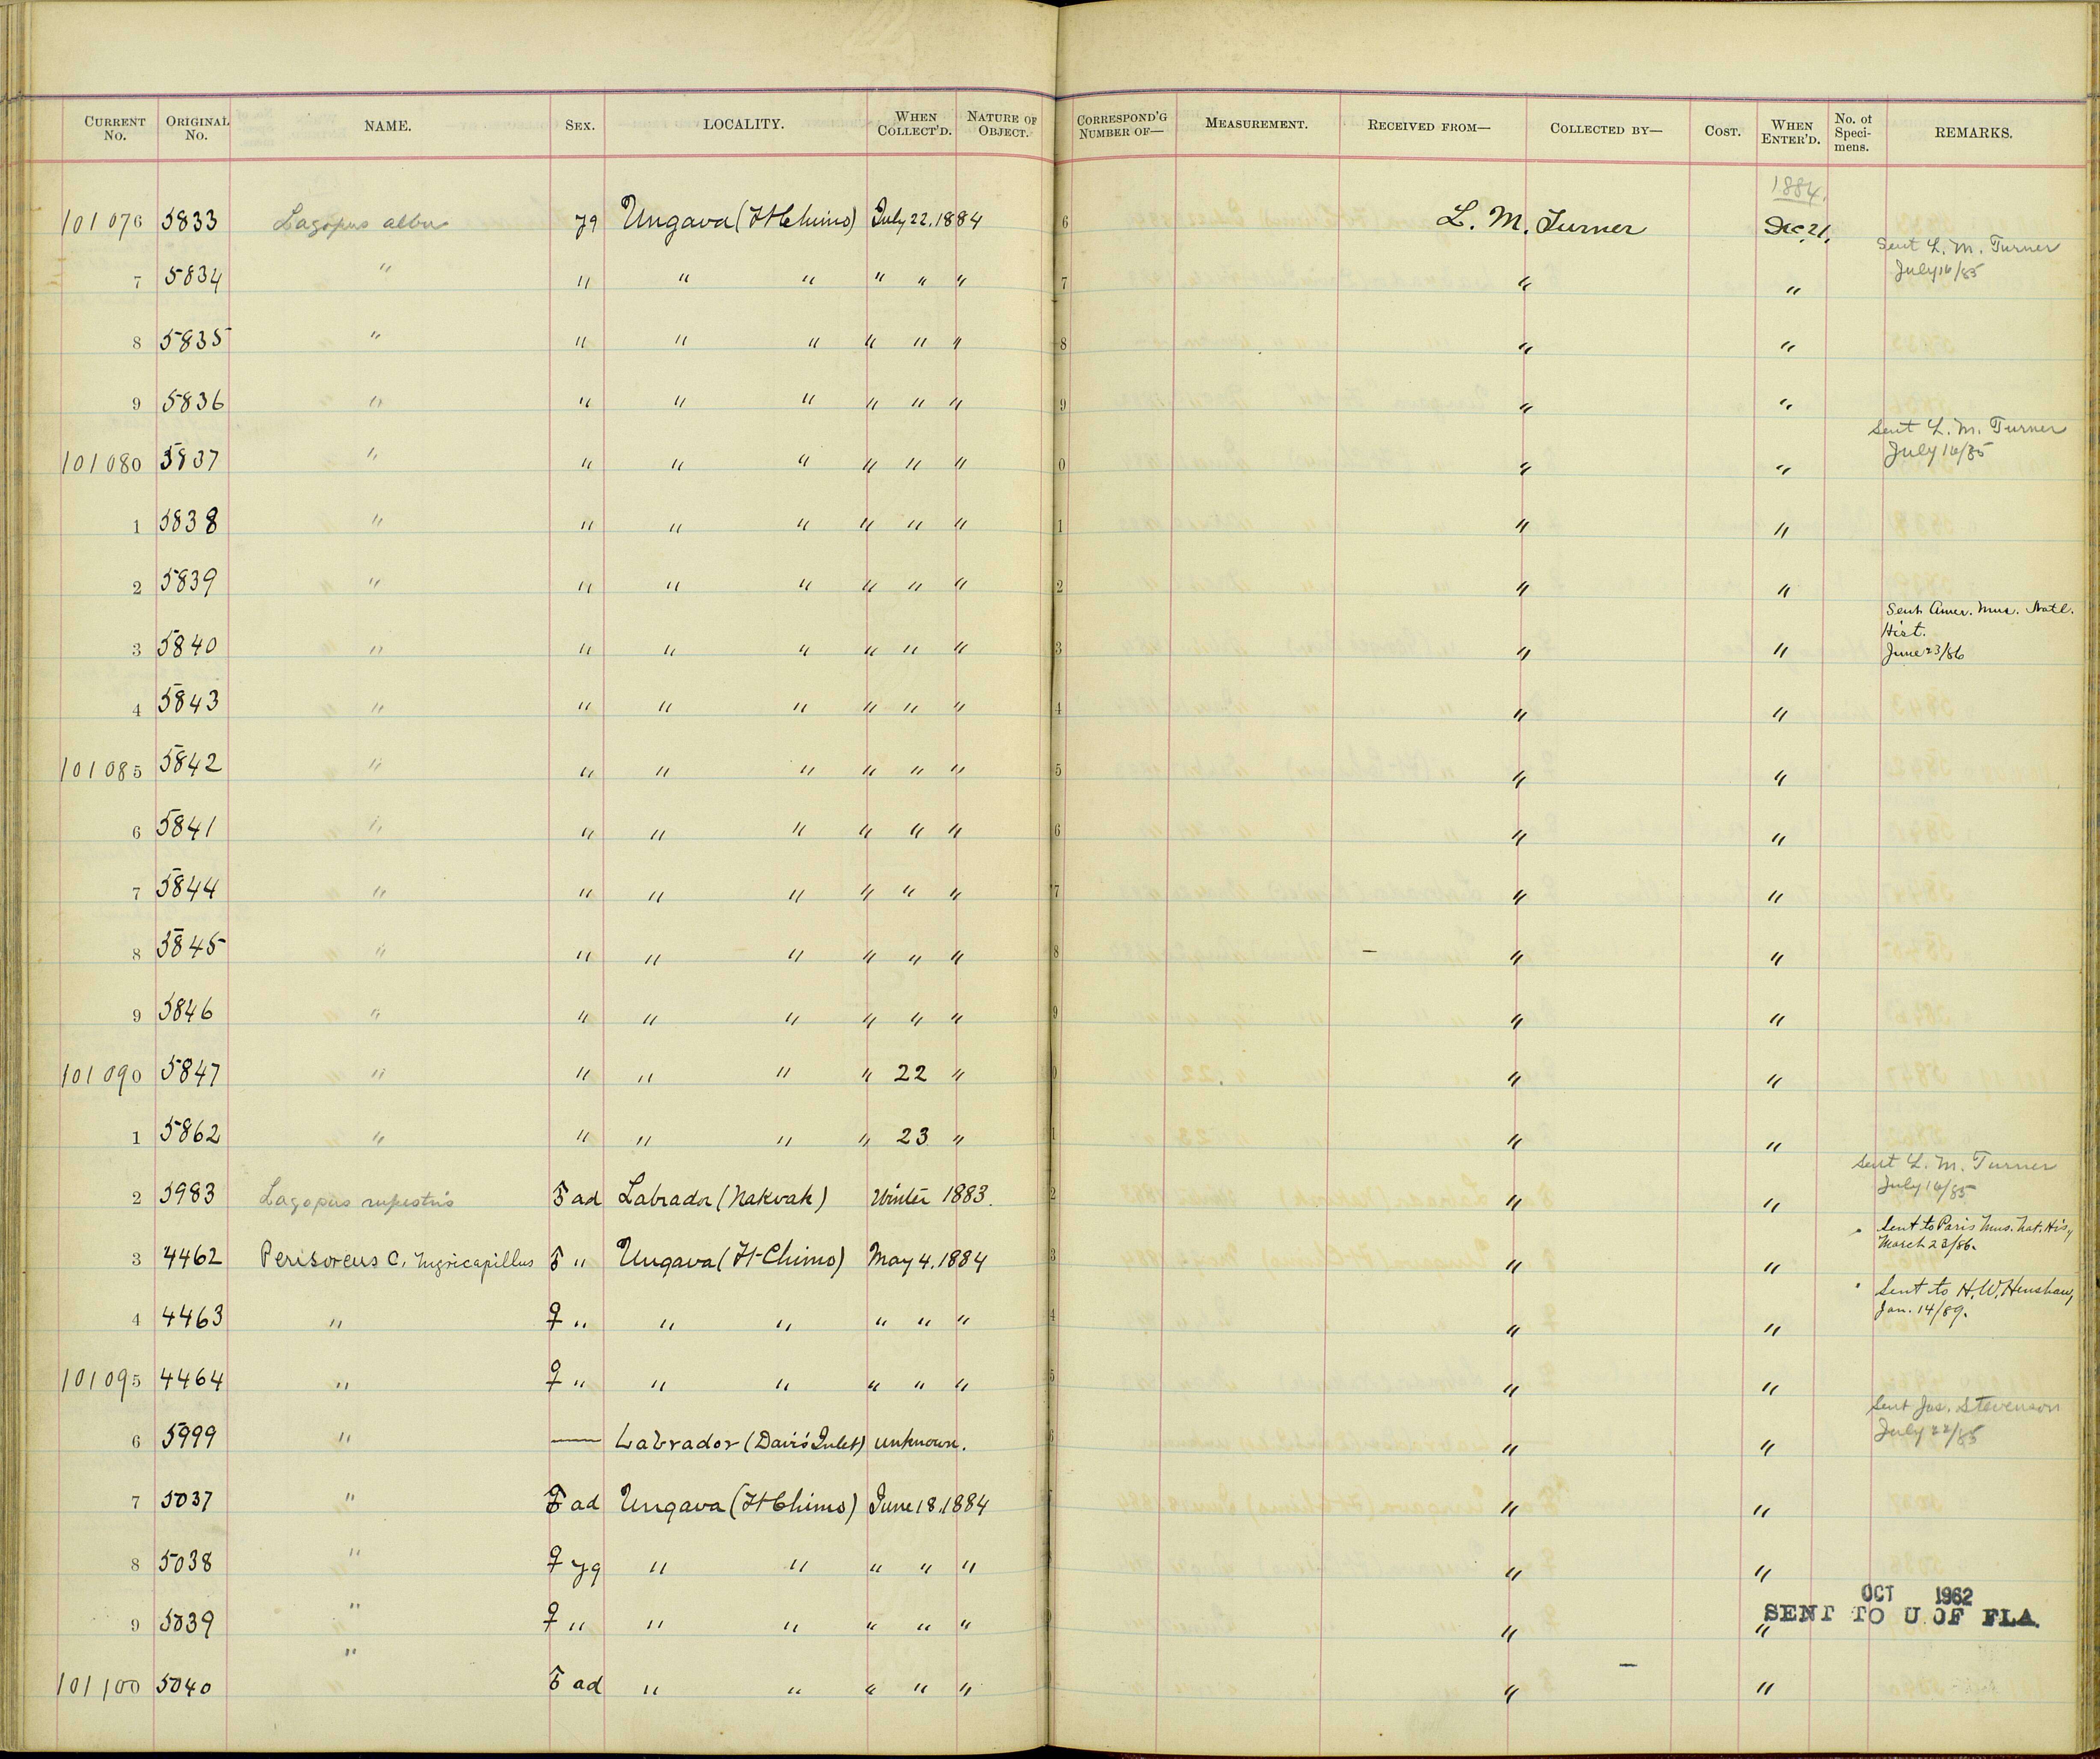 CURRENT No. ORIGINAL No. NAME. SEX. LOCALITY. WHEN COLLECT'D. NATURE OF OBJECT. CORRESPOND'G NUMBER OF— MEASUREMENT. RECEIVED FROM— COLLECTED BY— COST. WHEN ENTER'D. No. of Speci-mens. REMARKS.
1884.
101076 5833 Lagopus albus yg Ungava (Ft Chimo) July 22. 1884 6 L. M. Turner Dec. 21.
7 5834 " " " " " " " 7 " " Sent L. M. Turner July 16/85
8 5835 " " " " " " " 8 " "
9 5836 " " " " " " " 9 " "
101080 5837 " " " " " " " 0 " " Sent L. M. Turner July 16/85
1 5838 " " " " " " " 1 " "
2 5839 " " " " " " " 2 " "
3 5840 " " " " " " " 3 " " Sent Amer. Mus. Natl. Hist. June 23/86
4 5843 " " " " " " " 4 " "
101085 5842 " " " " " " " 5 " "
6 5841 " " " " " " " 6 " "
7 5844 " " " " " " " 7 " "
8 5845 " " " " " " " 8 — " "
9 5846 " " " " " " " 9 " "
101090 5847 " " " " " 22 " 0 " "
1 5862 " " " " " 23 " 1 " "
2 5983 Lagopus rupestris ♂ ad Labrador (Nakvak) Winter 1883. 2 " " Sent L. M. Turner July 16/85
3 4462 Perisoreus C. nigricapillus ♂ " Ungava (Ft Chimo) May 4. 1884 3 " " Sent to Paris Mus. Nat. His, March 23/86.
4 4463 " ♀ " " " " " " 4 " " Sent to H. W. Henshaw, Jan. 14/89.
101095 4464 " ♀ " " " " " " 5 " "
6 5999 " — Labrador (Davis Inlet) unknown. 6 " " Sent Jas. Stevenson July 22/85
7 5037 " ♂ ad Ungava (Ft Chimo) June 18. 1884 " "
8 5038 " ♀ yg " " " " " " "
OCT 1962
9 5039 " ♀ " " " " " " " " SENT TO U OF FLA.
101100 5040 " ♂ ad " " " " " " "